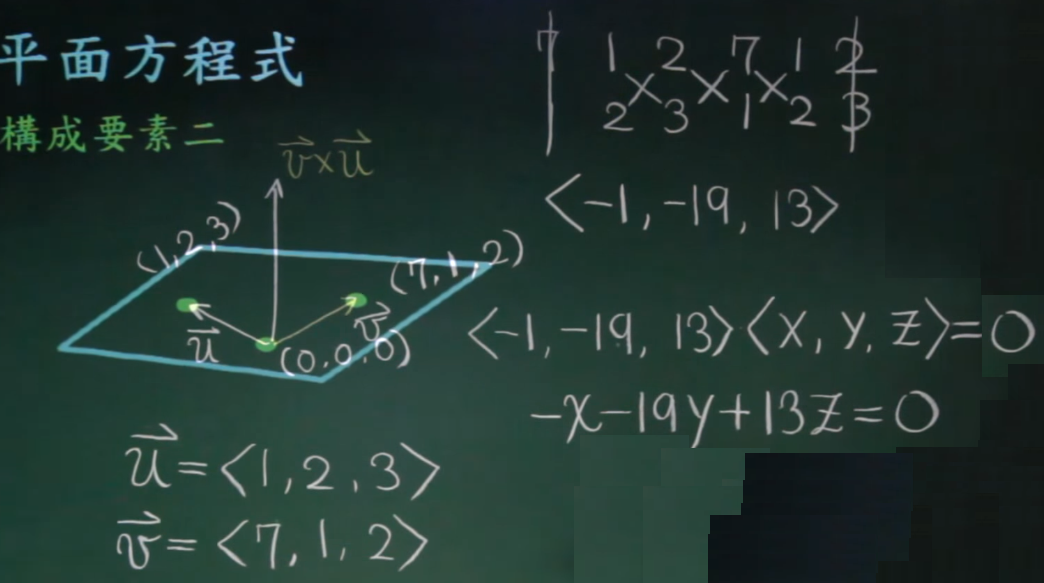 平面方程式
構成要素二
v⃗×u⃗
(1,2,3)
(7,1,2)
u⃗
v⃗
(0,0,0)
u⃗=<1,2,3>
v⃗=<7,1,2>
7 1 2 7 1 2
2 3 1 2 3
<-1,-19,13>
<-1,-19,13>·<x,y,z>=0
-x-19y+13z=0